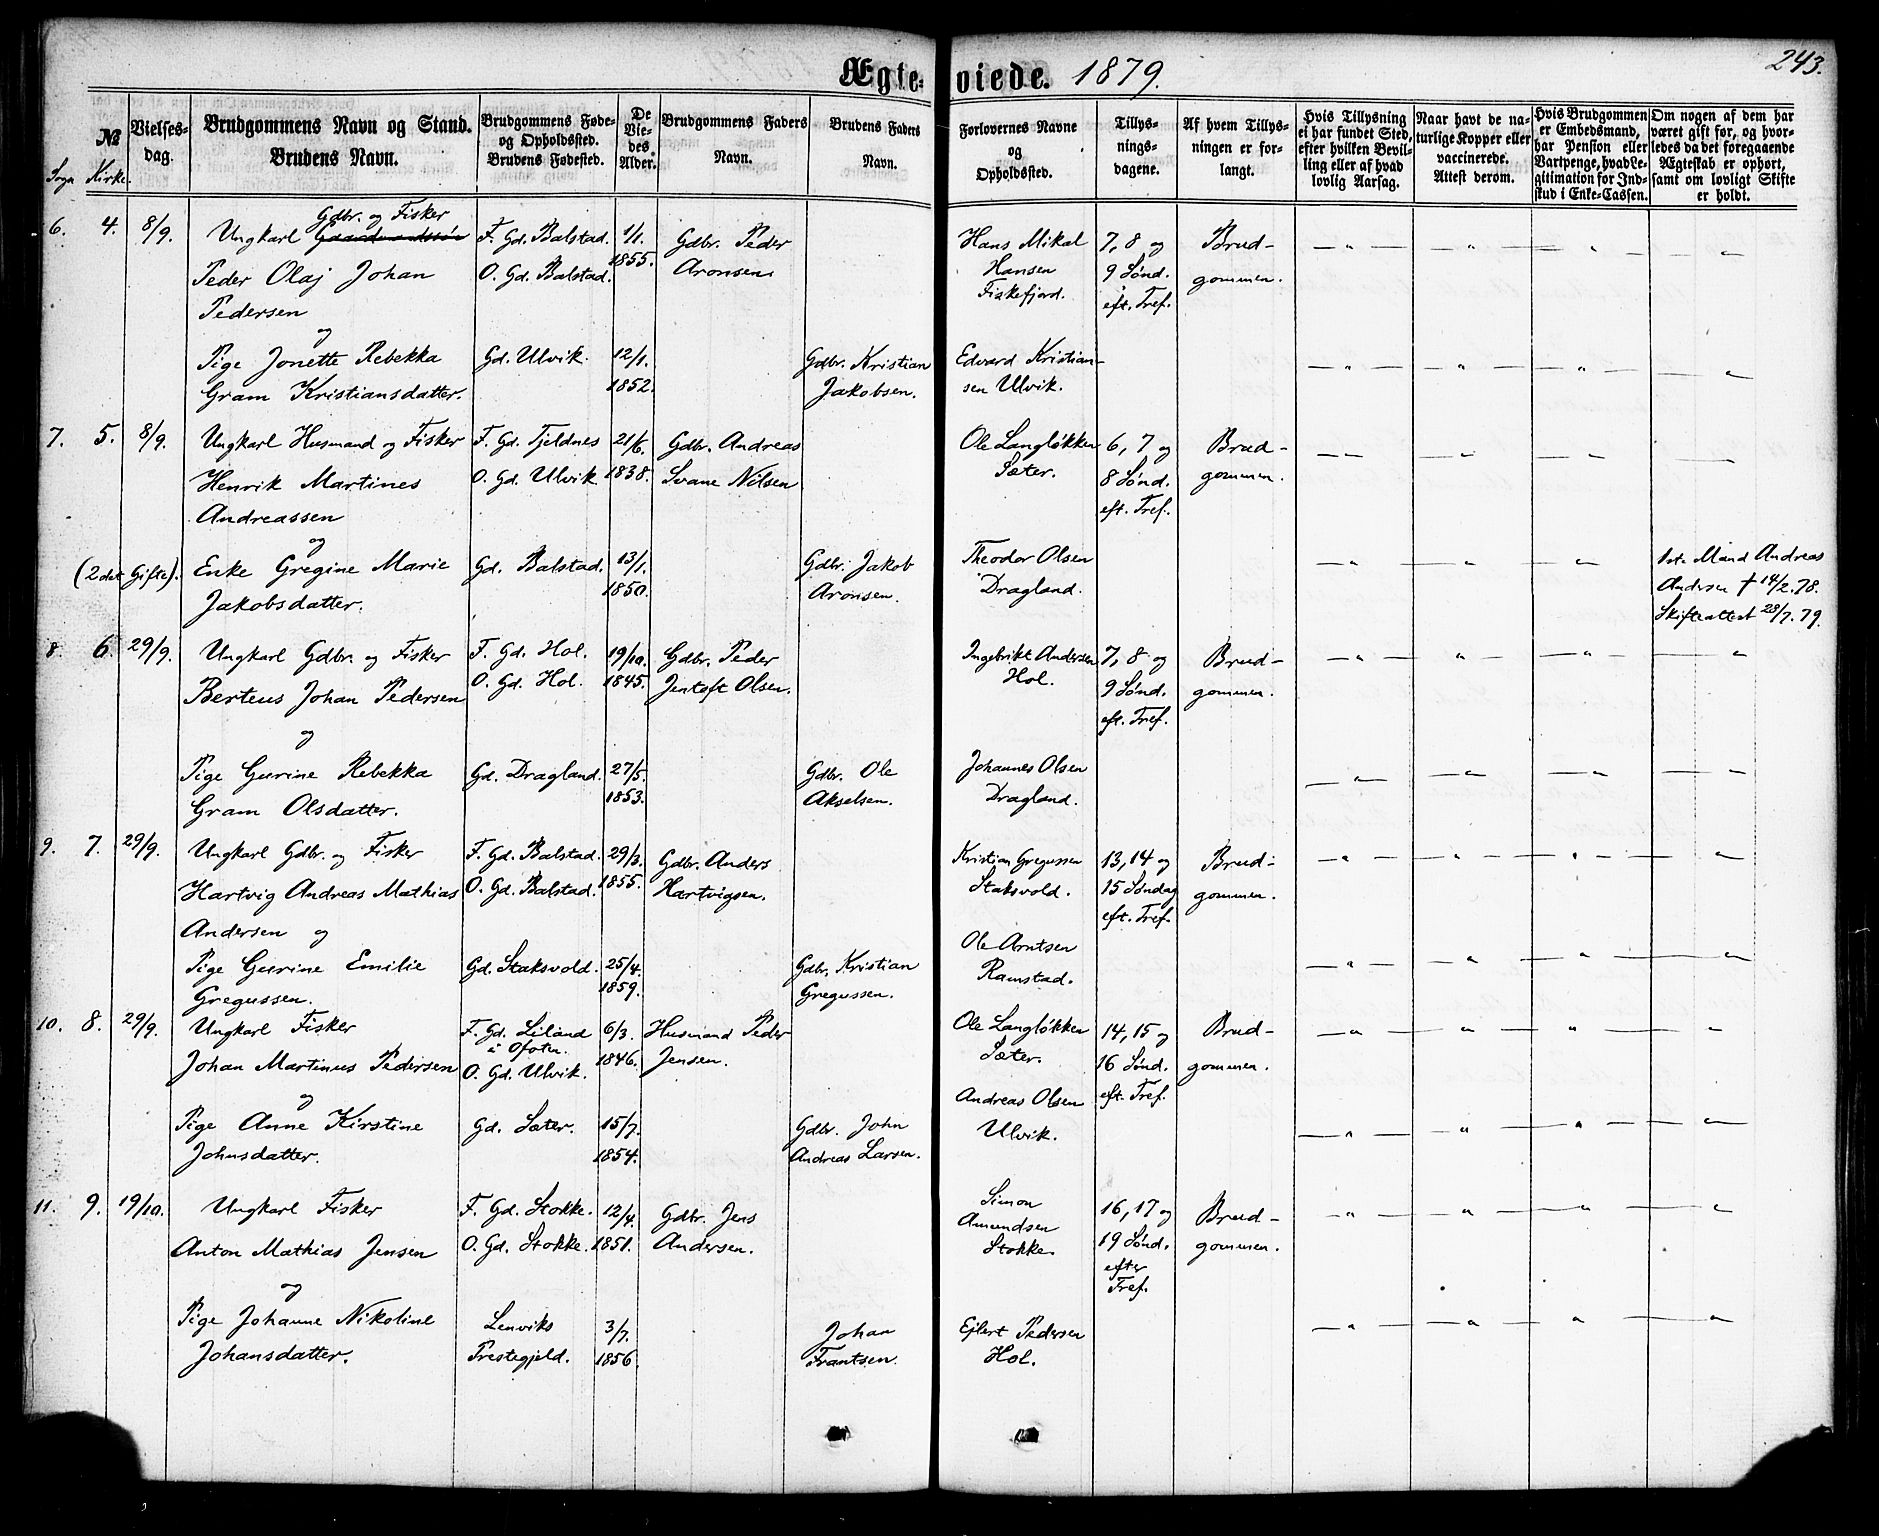 Ægteviede. 1879.
243.
№ Sogn Kirke.
Vielses-dag.
Brudgommens Navn og Stand. Brudens Navn.
Brudgommens Føde- og Opholdssted. Brudens Fødested.
De Viedes Alder.
Brudgommens Faders Navn.
Brudens Faders Navn.
Forlovernes Navne og Opholdssted.
Tillys-nings-dagene.
Af hvem Tillys-ningen er for-langt.
Hvis Tillysning ei har fundet Sted, efter hvilken Bevil-ling eller af hvad lovlig Aarsag.
Naar havt de na-turlige Kopper eller vaccinerede. Attest derom.
Hvis Brudgommen er Embedsmand, har Pension eller Vartpenge, hvad Le-gitimation for Ind-skud i Enke-Cassen.
Om nogen af dem har været gift før, og hvor-ledes da det foregaaende Ægteskab er ophørt, samt om lovligt Skifte er holdt.
6. 4. 8/9. Ungkarl Gdbr. og Fisker F. Gd. Balstad. 1/1. Gdbr. Peder Hans Mikal 7, 8 og Brud-
Peder Olaj Johan O. Gd. Balstad. 1855. Aronsen. Hansen 9 Sønd. gommen.
Pedersen Fiskefjord. eft. Tref.
og
Pige Jonette Rebekka Gd. Ulvik. 12/1. Gdbr. Kristian Edvard Kristian-
Gram Kristiansdatter. 1852. Jakobsen. sen Ulvik.
7. 5. 8/9. Ungkarl Husmand og Fisker F. Gd. Tjeldnes 21/6. Gdbr. Andreas Ole Langløkken 6, 7 og Brud-
Henrik Martines O. Gd. Ulvik 1838. Svane Nilsen Sæter. 8 Sønd. gommen.
Andreassen eft. Tref.
og
(2det Gifte). Enke Gregine Marie Gd. Balstad. 13/1. Gdbr. Jakob Theodor Olsen 1ste Mand Andreas
Jakobsdatter. 1850. Aronsen. Dragland. Andersen † 14/2. 78.
Skifteattest 28/7. 79.
8. 6. 29/9. Ungkarl Gdbr. og Fisker F. Gd. Hol. 19/10. Gdbr. Peder Ingebrikt Andersen 7, 8 og Brud-
Berteus Johan Pedersen O. Gd. Hol. 1845. Jentoft Olsen. Hol. 9 Sønd. gommen.
eft. Tref.
og
Pige Gurine Rebekka Gd. Dragland. 27/5. Gdbr. Ole Johannes Olsen
Gram Olsdatter. 1853. Akselsen. Dragland.
9. 7. 29/9. Ungkarl Gdbr. og Fisker F. Gd. Balstad. 29/3. Gdbr. Anders Kristian Gregussen 13, 14 og Brud-
Hartvig Andreas Mathias O. Gd. Balstad. 1855. Hartvigsen. Staksvold. 15 Søndag gommen.
Andersen og eft. Tref.
Pige Gurine Emilie Gd. Staksvold. 25/4. Gdbr. Kristian Ole Arntsen
Gregussen. 1859. Gregussen. Ramstad.
10. 8. 29/9. Ungkarl Fisker F. Gd. Liland i Ofoten. 6/3. Husmand Peder Ole Langløkken 14, 15 og Brud-
Johan Martinus Pedersen O. Gd. Ulvik. 1846. Jensen. Sæter. 16 Sønd. gommen.
og eft. Tref.
Pige Anne Kirstine Gd. Sæter. 15/7. Gdbr. John Andreas Olsen
Johnsdatter. 1854. Andreas Larsen. Ulvik.
11. 9. 19/10. Ungkarl Fisker F. Gd. Stokke. 12/4. Gdbr. Jens Simon 16, 17 og Brud-
Anton Mathias Jensen O. Gd. Stokke. 1851. Andersen. Amundsen 19 Sønd. gommen.
Stokke. efter
og Tref.
Pige Johanne Nikoline Lenviks 3/7. Johan Ejlert Pedersen
Johansdatter. Prestegjeld. 1856. Frantsen. Hol.